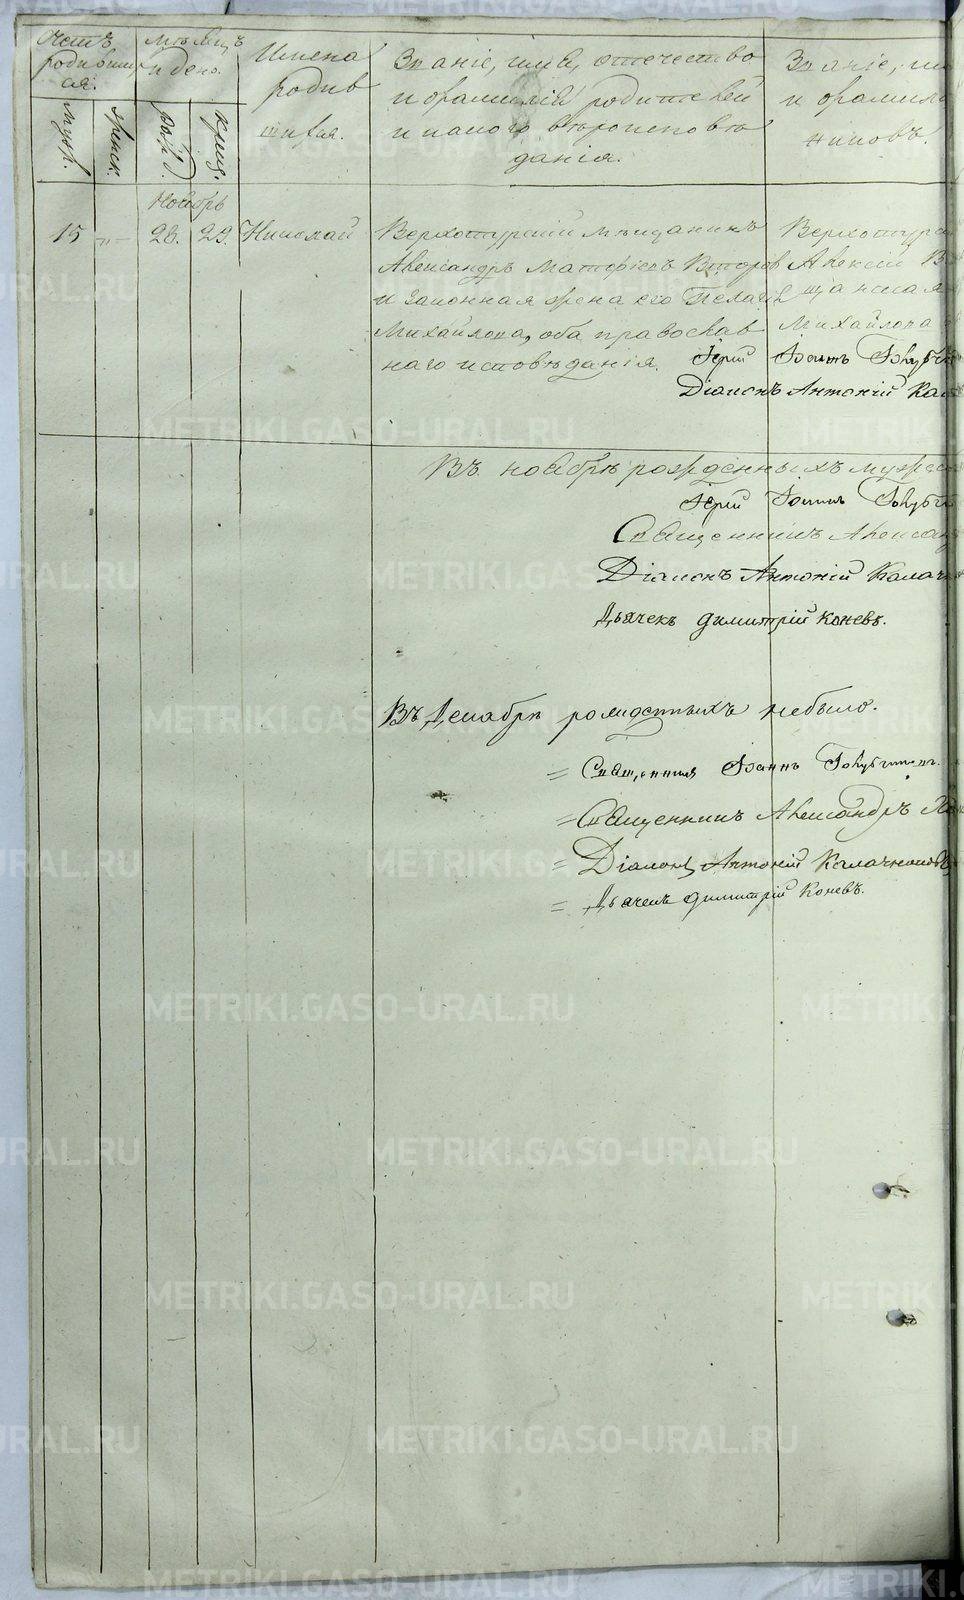 Счетъ родившихся.
Мѣсяцъ и день.
Имена родившихся.
Званіе, имя, отечество
и фамилія родителей
и какого вѣроисповѣ
данія.
Званіе,
и фамил
никовъ.
муж.
женск.
рожд.
крещ.
Ноябрь
15 — 28. 29. Николай
Верхотурскій мѣщанинъ
Александръ Второв
и законная жена его Пелагія
Михайлова, оба православ
наго исповѣданія.
Верхотурс
Алексій В
щанская
Михайлова
Іерей Іоаннъ Голуб
Діаконъ Антоній Кал
Въ ноябрѣ рожденныхъ мужес
Іерей Іоаннъ Голуб
Священникъ Алексан
Діаконъ Антоній Калач
Дьячекъ Димитрій Коневъ.
Въ Декабрѣ рожденныхъ небыло.
= Священник Іоаннъ
= Священникъ Александръ
= Діаконъ Антоній Калачниковъ
= Дьячекъ Димитрій Коневъ.
METRIKI.GASO-URAL.RU